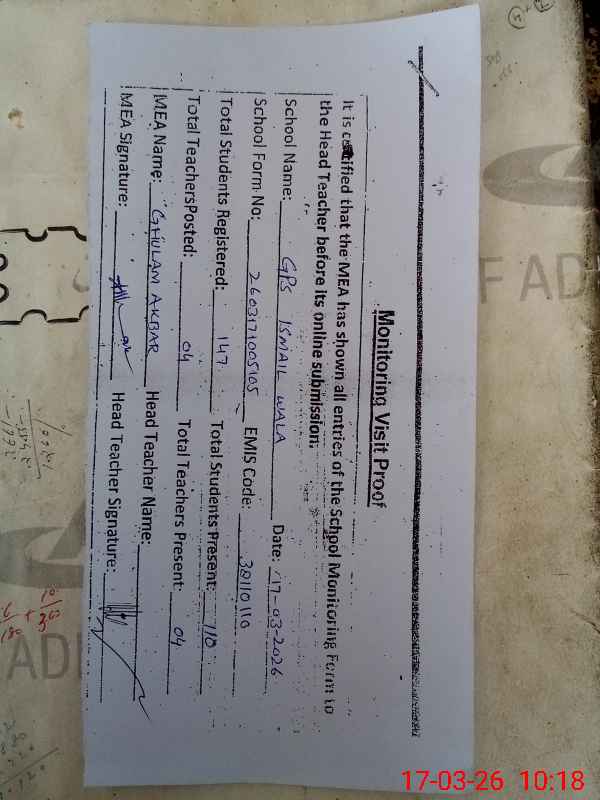 Monitoring Visit Proof
It is certified that the MEA has shown all entries of the School Monitoring Form to
the Head Teacher before its online submission.
School Name: GPS ISMAIL WALA Date: 17-03-2026
School Form No: 2603171005105 EMIS Code: 38110110
Total Students Registered: 147 Total Students Present: 110
Total TeachersPosted: 04 Total Teachers Present: 04
MEA Name: GHULAM AKBAR Head Teacher Name:
MEA Signature: Head Teacher Signature:
F AD
AD
17-03-26 10:18